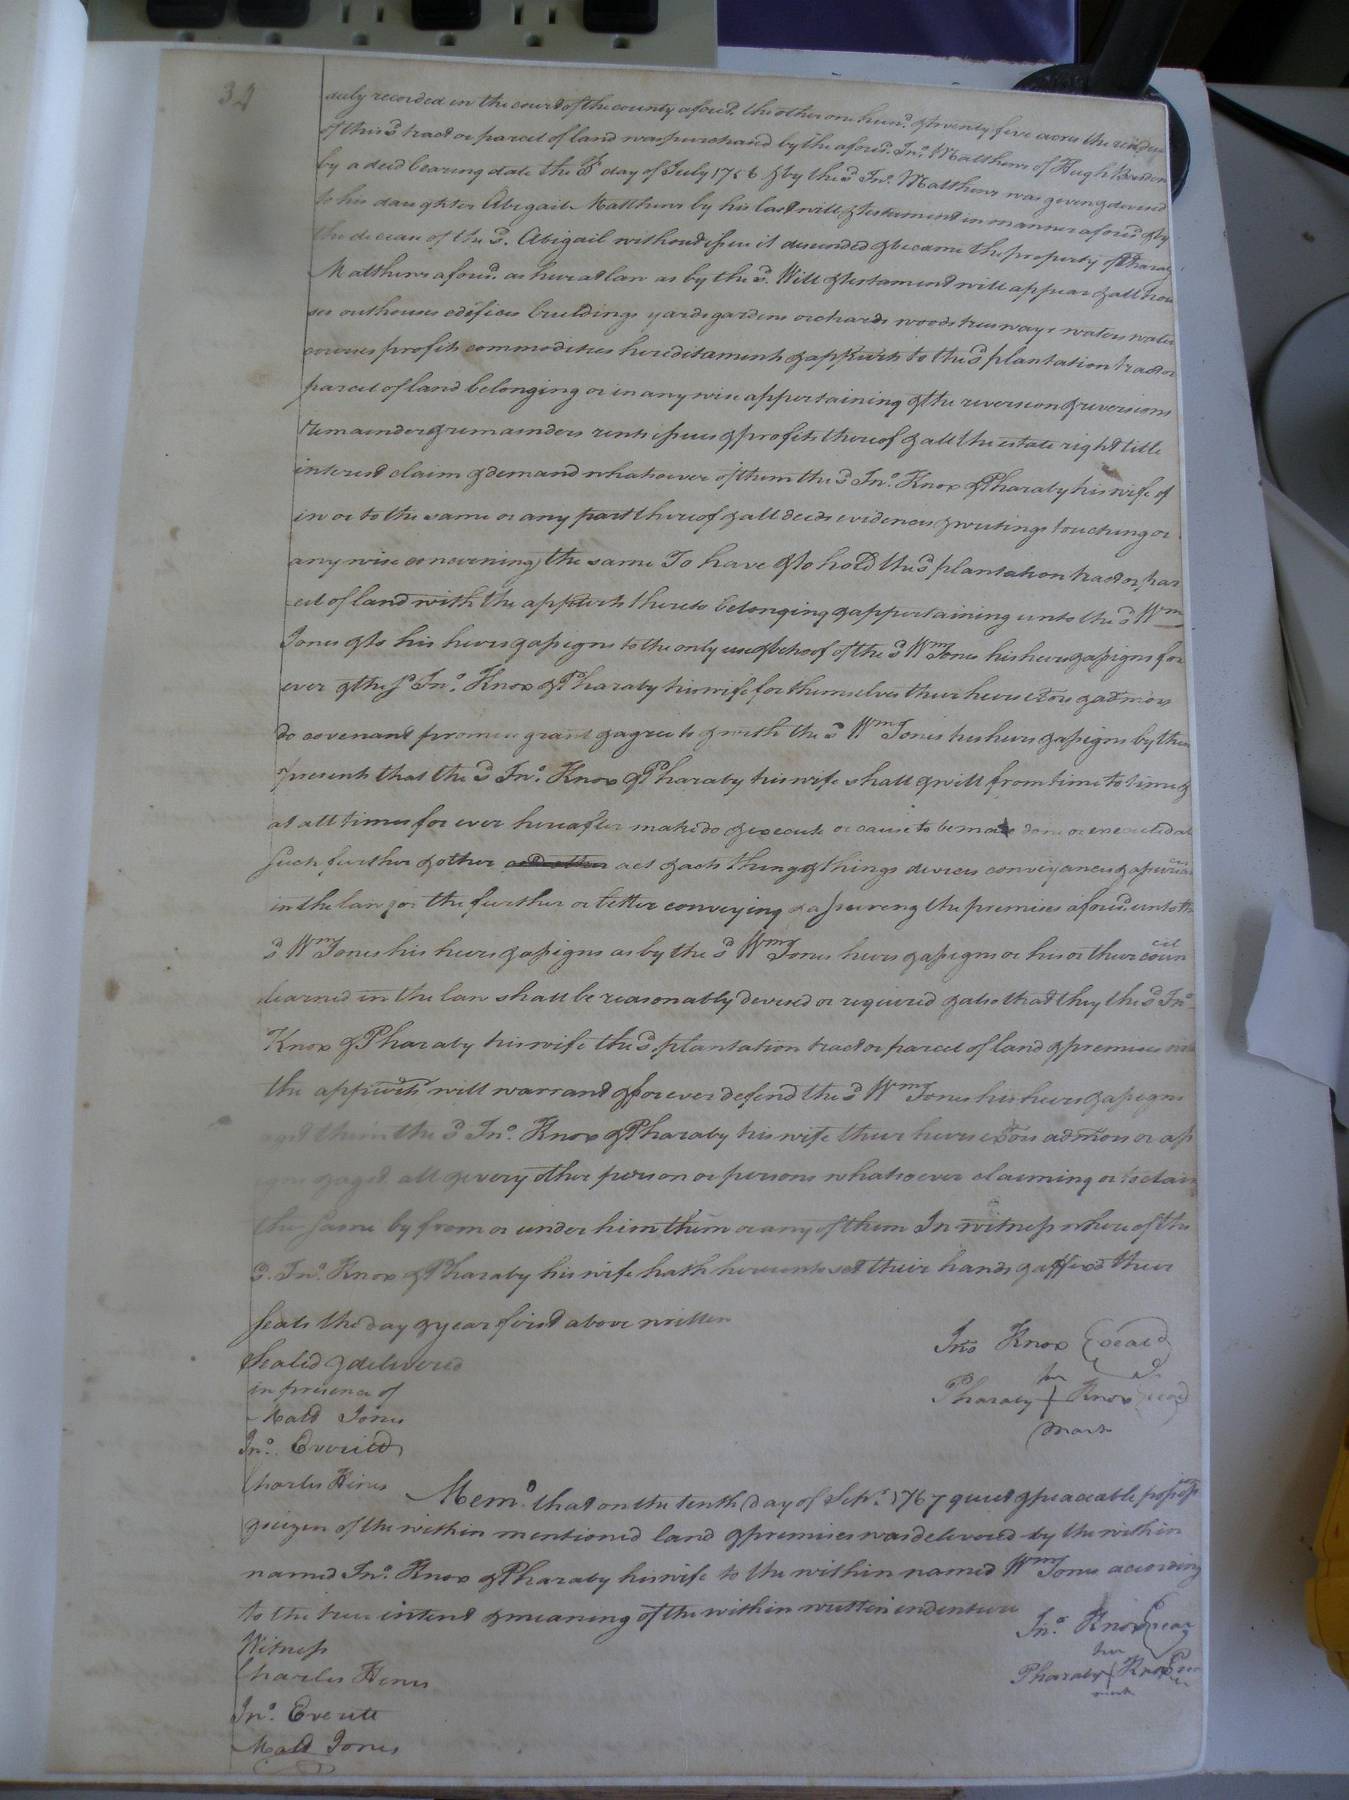 34
duly recorded in the court of the county afores.d the other one hun.d & twenty five acres the residue
of this s.d tract or parcel of land was purchased by the afores.d Jn.o Matthews of Hugh
by a deed bearing date the day of July 1756 & by the s.d Jn.o Matthews was given & devised
to his daughter Abigail Matthews by his last will & testament in manner afores.d & by
the decease of the s.d Abigail without issue it descended & became the property of Pharaby
Matthews afores.d as heir at law as by the s.d Will & testament will appear & all hou
ses outhouses edifices buildings yards gardens orchards woods trees ways waters water
courses profits commodities hereditaments & appurts to the s.d plantation tract or
parcel of land belonging or in any wise appertaining & the reversion & reversions
remainder & remainders rents issues & profits thereof & all the estate right title
interest claim & demand whatsoever of them the s.d Jn.o Knox & Pharaby his wife of
in or to the same or any part thereof & all deeds evidences & writings touching or
any wise concerning the same To have & to hold the s.d plantation tract or par
cel of land with the appurts thereto belonging & appertaining unto the s.d Wm
Jones & to his heirs & assigns to the only use & behoof of the s.d Wm Jones his heirs & assigns for
ever & the s.d Jn.o Knox & Pharaby his wife for themselves their heirs Exors & admors
do covenant promise grant & agree to & with the s.d Wm Jones his heirs & assigns by these
presents that the s.d Jn.o Knox & Pharaby his wife shall & will from time to time &
at all times for ever hereafter make do & execute or cause to be made done or executed all
such further & other act & acts thing & things devices conveyances & assurances
in the law for the further or better conveying & assureing the premises afores.d unto the
s.d Wm Jones his heirs & assigns as by the s.d Wm Jones heirs & assigns or his or their councel
learned in the law shall be reasonably devised or required & also that they the s.d Jn.o
Knox & Pharaby his wife the s.d plantation tract or parcel of land & premises with
the appurts will warrant & forever defend the s.d Wm Jones his heirs & assigns
ag.st them the s.d Jn.o Knox & Pharaby his wife their heirs exors admors or ass
igns & ag.st all & every other person or persons whatsoever claiming or to claim
the same by from or under him them or any of them In witness whereof the
s.d Jn.o Knox & Pharaby his wife hath hereunto set their hands & affixed their
seals the day & year first above written
Sealed & delivered
in presence of
Matt Jones
Jn.o Everitt
Charles Hines
Jno Knox (seal)
her
Pharaby Knox (seal)
mark
Mem.o that on the tenth day of Sep.r 1767 quiet & peaceable possess
& seizen of the within mentioned land & premises was delivered by the within
named Jn.o Knox & Pharaby his wife to the within named Wm Jones according
to the true intent & meaning of the within written indenture
Jn.o Knox (seal)
her
Pharaby Knox
mark
Witness
Charles Hines
Jn.o Everitt
Matt Jones